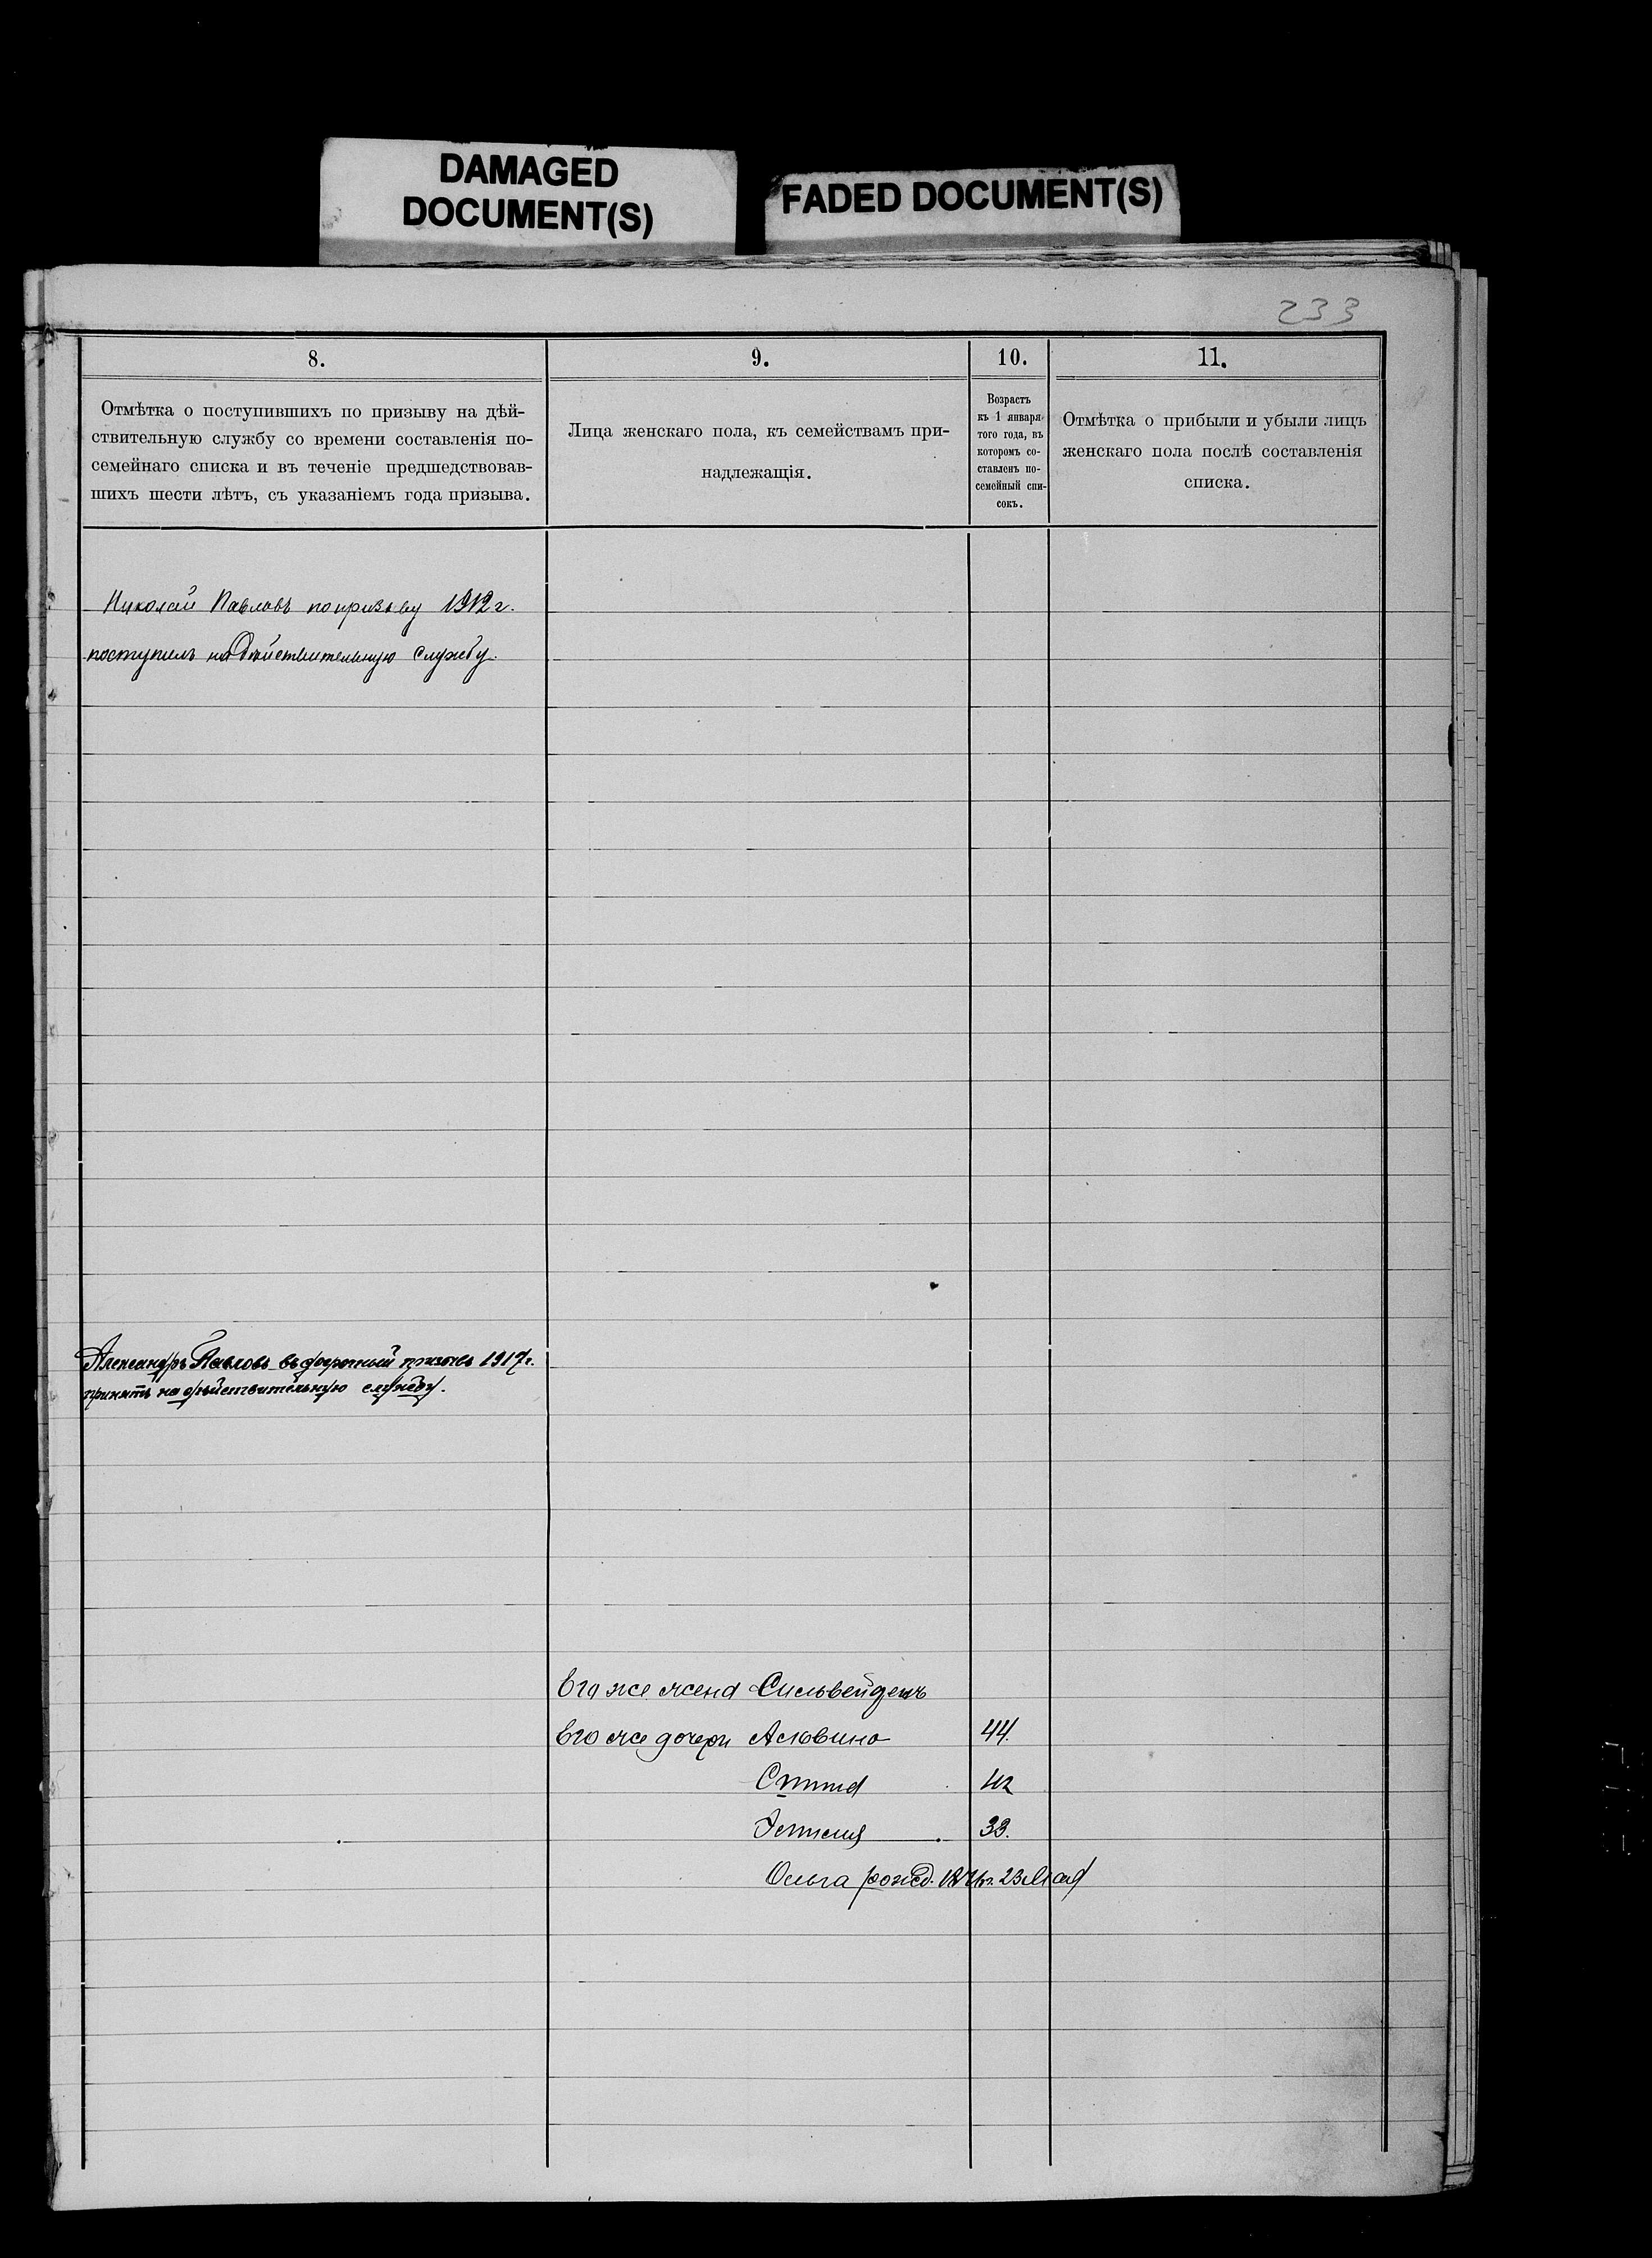 DAMAGED
DOCUMENT(S)
FADED DOCUMENT(S)
233
8.
9.
10.
11.
Отмѣтка о поступившихъ по призыву на дѣй-
ствительную службу со времени составленія по-
семейнаго списка и въ теченіе предшедствовав-
шихъ шести лѣтъ, съ указаніемъ года призыва.
Лица женскаго пола, къ семействамъ при-
надлежащія.
Возрастъ
къ 1 января
того года, въ
которомъ со-
ставленъ по-
семейный спи-
сокъ.
Отмѣтка о прибыли и убыли лицъ
женскаго пола послѣ составленія
списка.
Николай Павловъ по призыву 1912 г.
поступилъ на дѣйствительную службу.
Александръ Павловъ въ досрочный призывъ 1917 г.
принятъ на дѣйствительную службу.
Его же жена
Его же дочери 44.
42
33.
Ольга рожд. 23 Мая